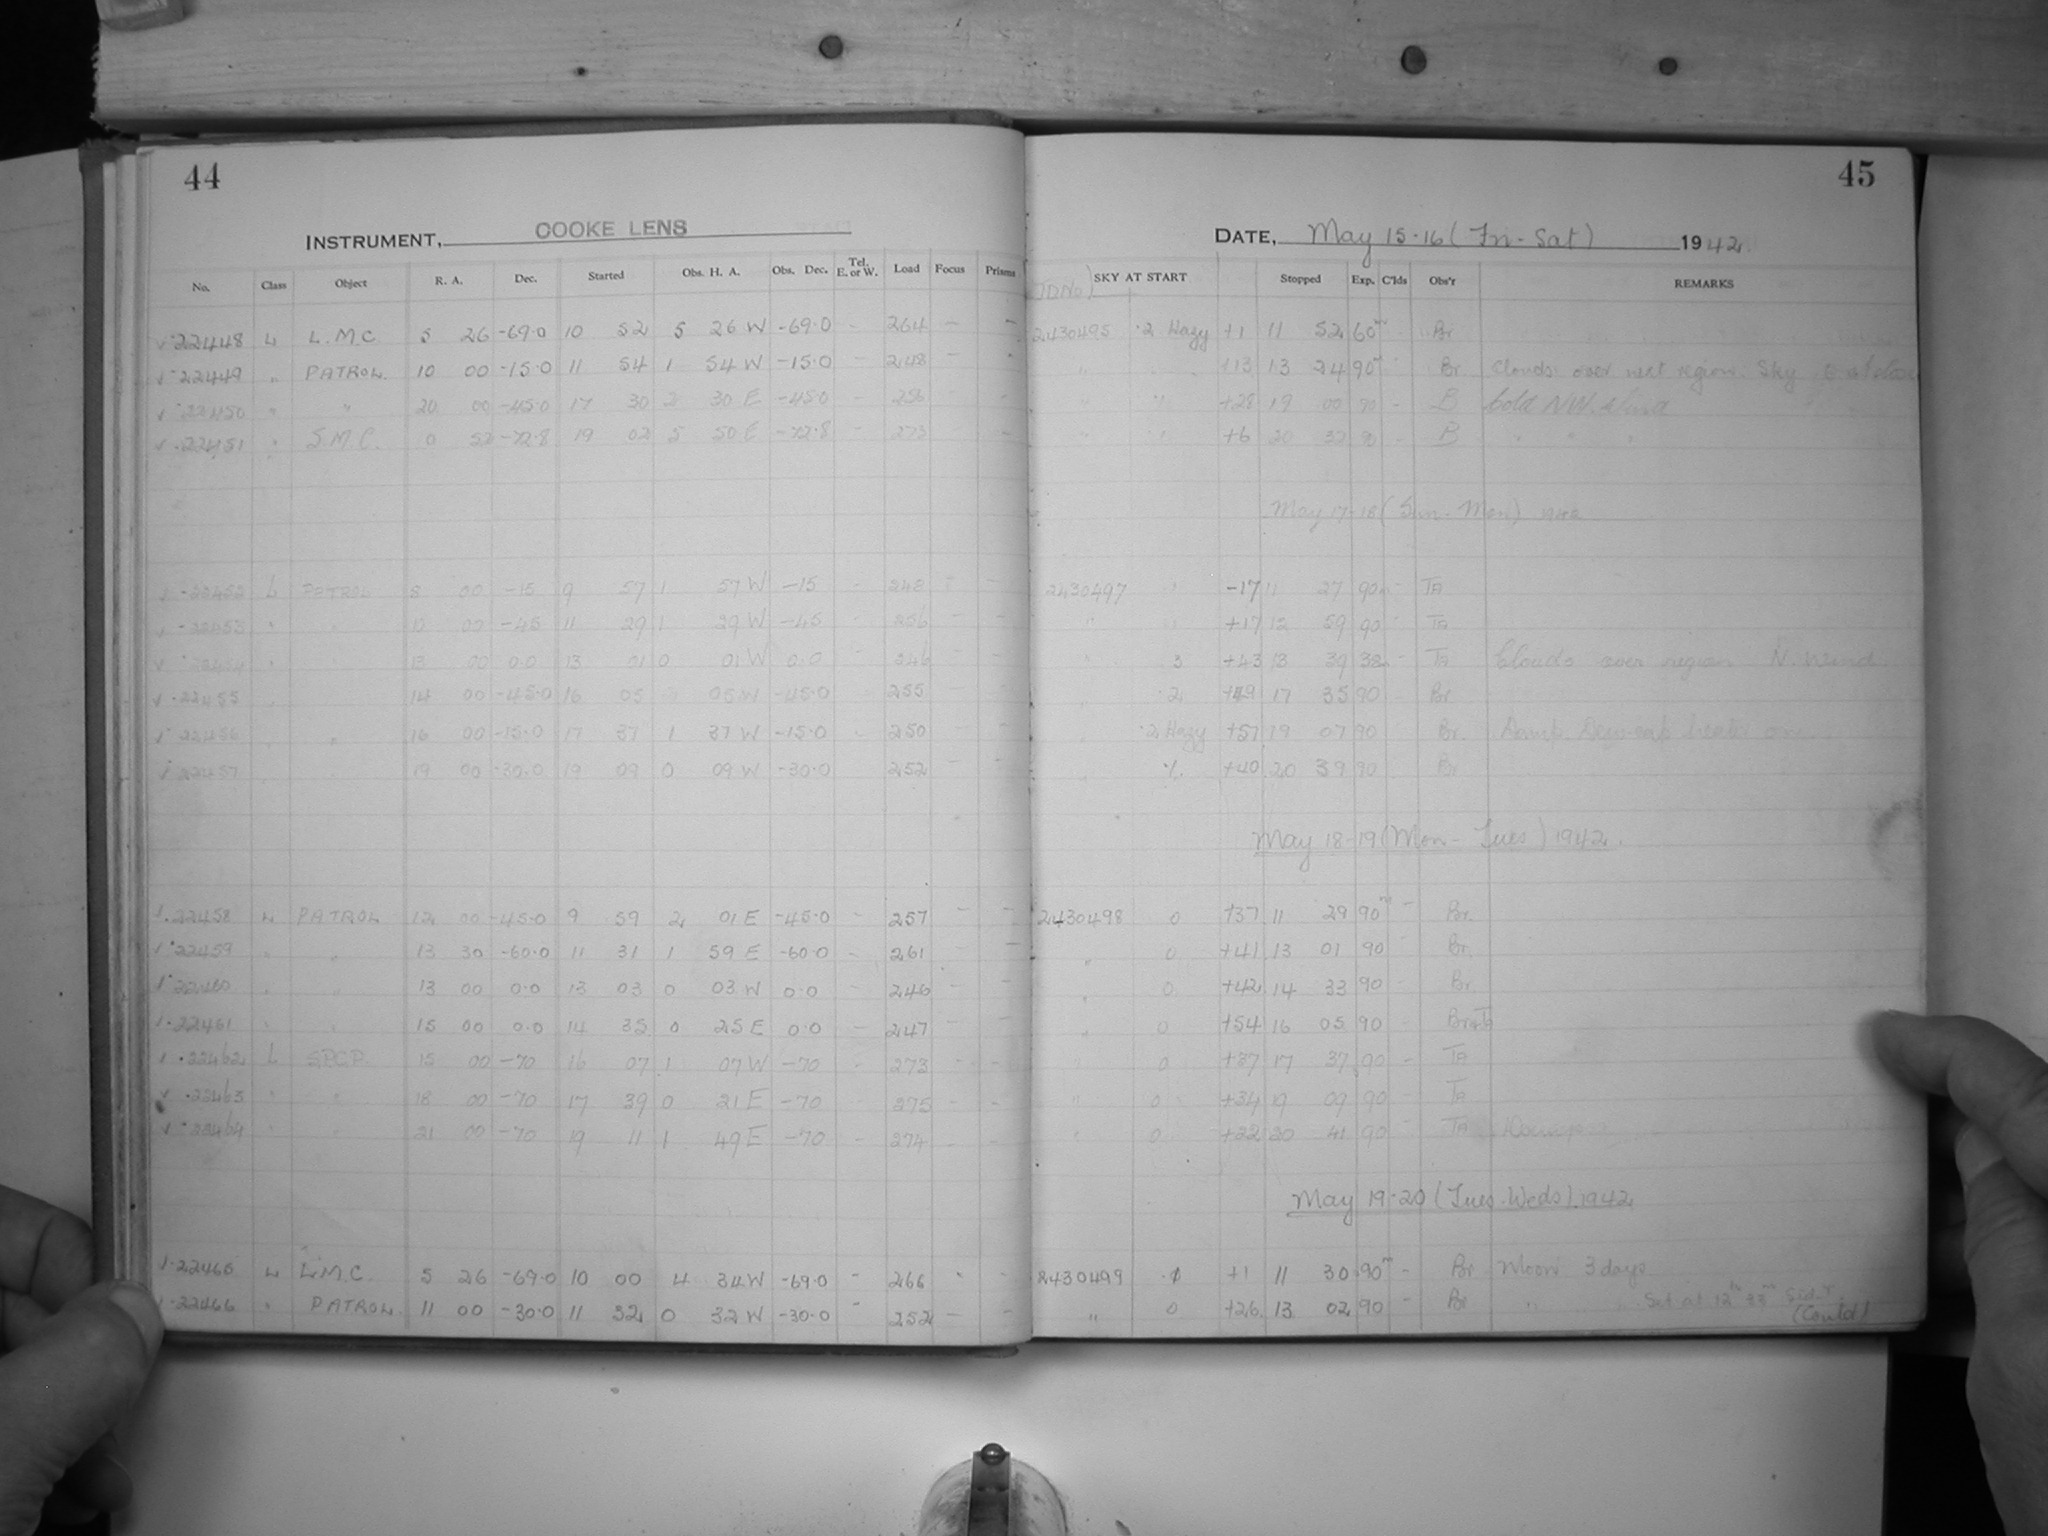 44
INSTRUMENT, COOKE LENS
No. Class Object R. A. Dec. Started Obs. H. A. Obs. Dec. Tel. E. or W. Load Focus Prisms
22448 L L.M.C. 5 26 -69.0 10 52 5 26 W -69.0 - 264 - -
22449 " PATROL 10 00 -15.0 11 54 1 54 W -15.0 248
22450 " " 20 00 -45.0 17 30 2 30 E -45.0 - 256
22451 " S.M.C. 0 52 -72.8 19 02 5 50 E -72.8 - 273
22452 L PATROL 8 00 -15 9 57 1 57 W -15 - 248 - -
22453 " 00 -45 11 29 1 29 W -45 256
22454 " 13 00 0.0 13 01 0 01 W 0.0 246
22455 14 00 -45.0 16 05 05 W -45.0 255
22456 " 16 00 -15.0 17 37 1 37 W -15.0 250
22457 19 00 -30.0 19 09 0 09 W -30.0 252
22458 L PATROL 12 00 -45.0 9 59 2 01 E -45.0 - 257 - -
22459 " " 13 30 -60.0 11 31 1 59 E -60.0 - 261
22460 " " 13 00 0.0 13 03 0 03 W 0.0 - 246 - -
22461 " " 15 00 0.0 14 35 0 25 E 0.0 - 247 - -
22462 L S.P.C.P. 15 00 -70 16 07 1 07 W -70 - 273 - -
22463 " " 18 00 -70 17 39 0 21 E -70 275 - -
22464 " " 21 00 -70 19 11 1 49 E -70 - 274 - -
22465 L L.M.C. 5 26 -69.0 10 00 4 34 W -69.0 - 266 - -
22466 " PATROL. 11 00 -30.0 11 32 0 32 W -30.0 - 252 - -
45
DATE, May 15-16 (Fri-Sat) 1942.
SKY AT START Stopped Exp. C'lds Obs'r REMARKS
2430495 .2 Hazy +1 11 52 60m Br
" +13 13 24 90m Br Clouds over west region. Sky
" " +28 19 00 90 - B Cold NW. Wind
" " +6 20 32 90 B " " "
May 17-18 (Sun-Mon) 1942
2430497 -17 11 27 90 - TA
" +17 12 59 90 TA
" 3 +43 13 39 38 - TA Clouds over region. N. Wind
" .2 +49 17 35 90 Br
" .2 Hazy +57 19 07 90 Br. Damp. Dew-cap heater on.
" +40 20 39 90 Br
May 18-19 (Mon-Tues) 1942.
2430498 0 +37 11 29 90m - Br.
" 0 +41 13 01 90 Br.
" 0 +42 14 33 90 - Br.
" 0 +54 16 05 90 -
" 0 +37 17 37 90 - TA
" 0 +34 19 09 90 TA
" 0 +22 20 41 90 - TA
May 19-20 (Tues-Weds). 1942
2430499 +1 11 30 90m - Br Moon 3 days
" 0 +26 13 02 90 - Br " Set at 12h 33m Sid. T.
(Contd)